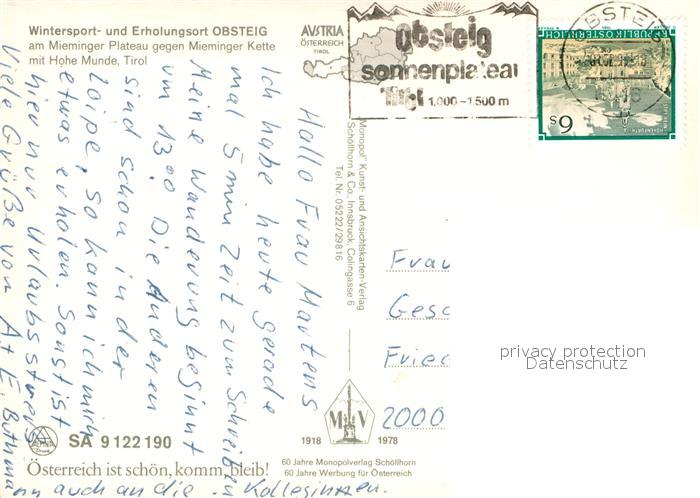 Wintersport- und Erholungsort OBSTEIG
am Mieminger Plateau gegen Mieminger Kette
mit Hohe Munde, Tirol
AUSTRIA
ÖSTERREICH
TIROL
Obsteig
sonnenplateau
Tirol 1.000-1.500 m
OBSTEIG
REPUBLIK ÖSTERREICH
6 S
Hallo Frau Martens
Ich habe heute gerade
mal 5 min Zeit zum Schreiben
Meine Wanderung beginnt
um 13.00 Die Anderen
sind schon in der
Loipe, so kann ich mich
etwas erholen. Sonst ist
hier nur Urlaubsstress
Viele Grüße von A + E. Buthma
nn auch an die Kolleginnen.
"Monopol" Kunst- und Ansichtskarten-Verlag
Schöllhorn & Co. Innsbruck, Colingasse 6
Tel. Nr. 05222/29816
Frau
Gesc
Fried
2000
privacy protection
Datenschutz
M V
1918 1978
60 Jahre Monopolverlag Schöllhorn
60 Jahre Werbung für Österreich
SA 9122190
Österreich ist schön, komm, bleib!